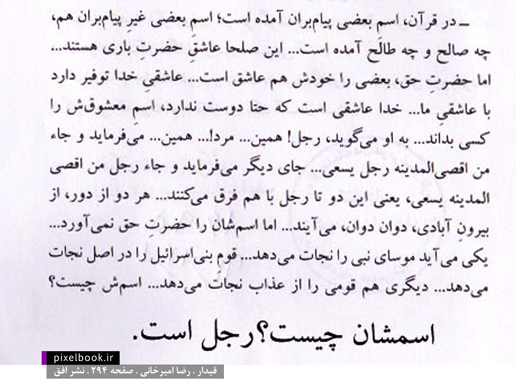 ـ در قرآن، اسم بعضی پیام‌بران آمده است؛ اسم بعضی غیرِ پیام‌بران هم،
چه صالح و چه طالَح آمده است... این صلحا عاشقِ حضرتِ باری هستند...
اما حضرتِ حق، بعضی را خودش هم عاشق است... عاشقیِ خدا توفیر دارد
با عاشقیِ ما... خدا عاشقی است که حتا دوست ندارد، اسمِ معشوقش را
کسی بداند... به او می‌گوید، رجل! همین... مرد!... همین... می‌فرماید و جاء
من اقصی‌المدینه رجل یسعی... جای دیگر می‌فرماید و جاء رجل من اقصی
المدینه یسعی، یعنی این دو تا رجل با هم فرق می‌کنند... هر دو از دور، از
بیرونِ آبادی، دوان دوان، می‌آیند... اما اسم‌شان را حضرتِ حق نمی‌آورد...
یکی می‌آید موسای نبی را نجات می‌دهد... قومِ بنی‌اسرائیل را در اصل نجات
می‌دهد... دیگری هم قومی را از عذاب نجات می‌دهد... اسم‌ش چیست؟
اسمشان چیست؟رجل است.
pixelbook.ir
قیدار . رضا امیرخانی . صفحه ۲۹۴ . نشر افق